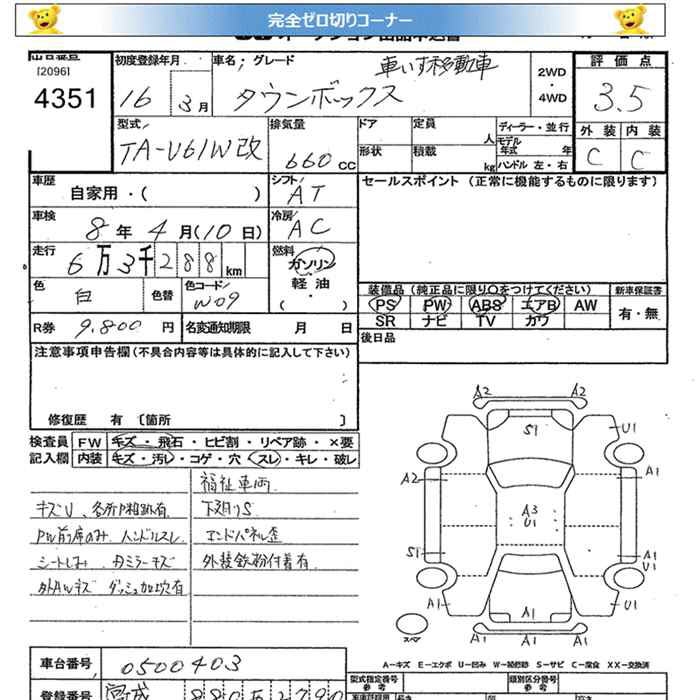 完全ゼロ切りコーナー
[2096]
4351
初度登録年月
16 3月
車名; グレード
車いす移動車
タウンボックス
2WD
・
4WD
評価点
3.5
外装 内装
C C
型式
TA-U61W改
排気量
660 CC
ドア 定員 人
形状 積載 kg
ディーラー・並行
モデル年式 年
ハンドル 左・右
車歴
自家用・( )
シフト
AT
セールスポイント (正常に機能するものに限ります)
車検
8年 4月(10日)
冷房
AC
走行
6万3千288km
燃料
ガソリン
軽油
( ・ )
色
白
色替
色コード
W09
装備品 (純正品に限り○をつけてください)
PS PW ABS エアB AW
SR ナビ TV カワ
新車保証書
有・無
R券 9.800円
名変通知期限 月 日
後日品
注意事項申告欄(不具合内容等は具体的に記入して下さい)
修復歴 有 〔箇所 〕
検査員記入欄
FW キズ・飛石・ヒビ割・リペア跡・×要
内装 キズ・汚レ・コゲ・穴・スレ・キレ・破レ
福祉車両
キズU、各所P粗跡有 下廻りS
PW前席のみ ハンドルスレ エンドパネル歪
シートしみ 外装鉄粉付着有
ダッシュ加吹有
A2 A2
S1 U1
A2 A1
A3
U1
S1 A1
U1
A1 U1
スペア
A1 A1 A1
A-キズ E-エクボ U-凹み W-補修跡 S-サビ C-腐食 XX-交換済
車台番号 0500403
型式指定番号
参考
類別区分番号
参考
登録番号 宮城 880